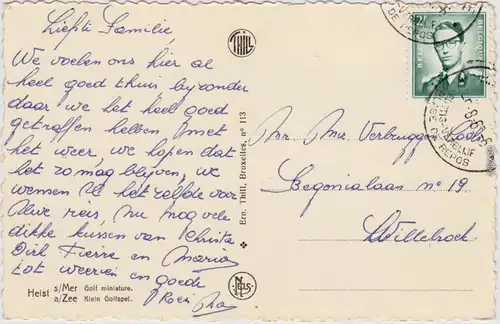 Liefste Familie
We voelen ons hier al
heel goed thuis, bijzonder
daar we het heel goed
getroffen hebben met
het weer, we hopen dat
het zo mag blijven, we
wensen U het zelfde voor
Uwe reis, nu nog vele
dikke kussen van Christa
Dirk Pierre en Maria
tot weerziens en goede
Heist s/Mer Golf miniature.
a/Zee Klein Golfspel.
THILL
Ern. Thill, Bruxelles, n° 113
NELS
BELGIQUE
BELGIE
DE REPOS
Mr. Mev. Verbruggen
Begonialaan n° 19
Willebroek